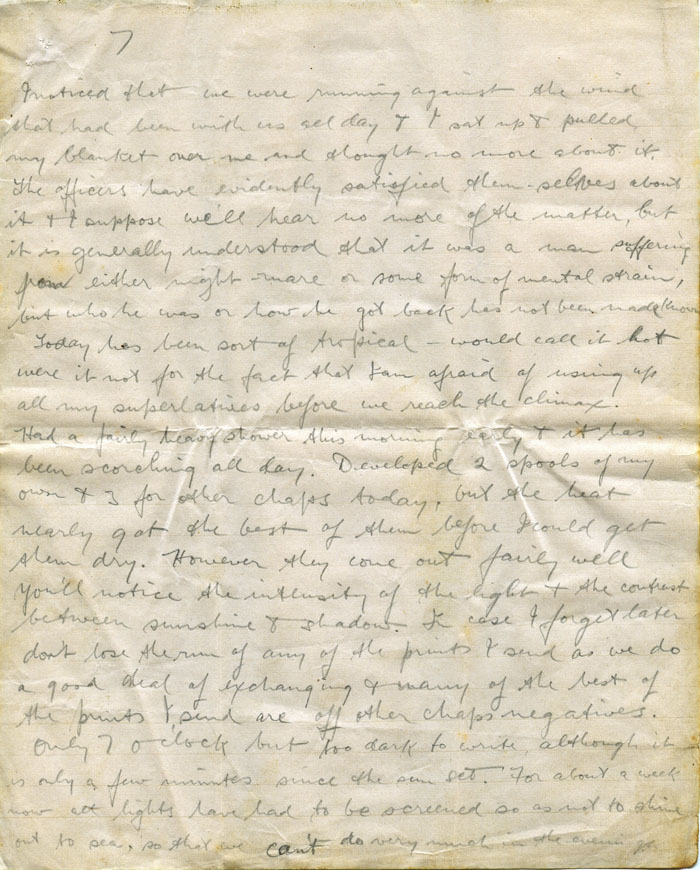 7
I noticed that we were running against the wind
that had been with us all day & I sat up & pulled
my blanket over me and thought no more about it.
The officers have evidently satisfied them-selves about
it & I suppose we'll hear no more of the matter, but
it is generally understood that it was a man suffering
from either night-mare or some form of mental strain,
but who he was or how he got back has not been made known
Today has been sort of tropical – would call it hot
were it not for the fact that I am afraid of using up
all my superlatives before we reach the climax.
Had a fairly heavy shower this morning early & it has
been scorching all day. Developed 2 spools of my
own & 3 for other chaps today, but the heat
nearly got the best of them before I could get
them dry. However they come out fairly well
You'll notice the intensity of the light & the contrast
between sunshine & shadow. In case I forget later
don't lose the run of any of the prints I send as we do
a good deal of exchanging & many of the best of
the prints I send are off other chaps negatives.
Only 7 o'clock but too dark to write, although it
is only a few minutes since the sun set. For about a week
now all lights have had to be screened so as not to shine
out to sea, so that we can't do very much in the evenings